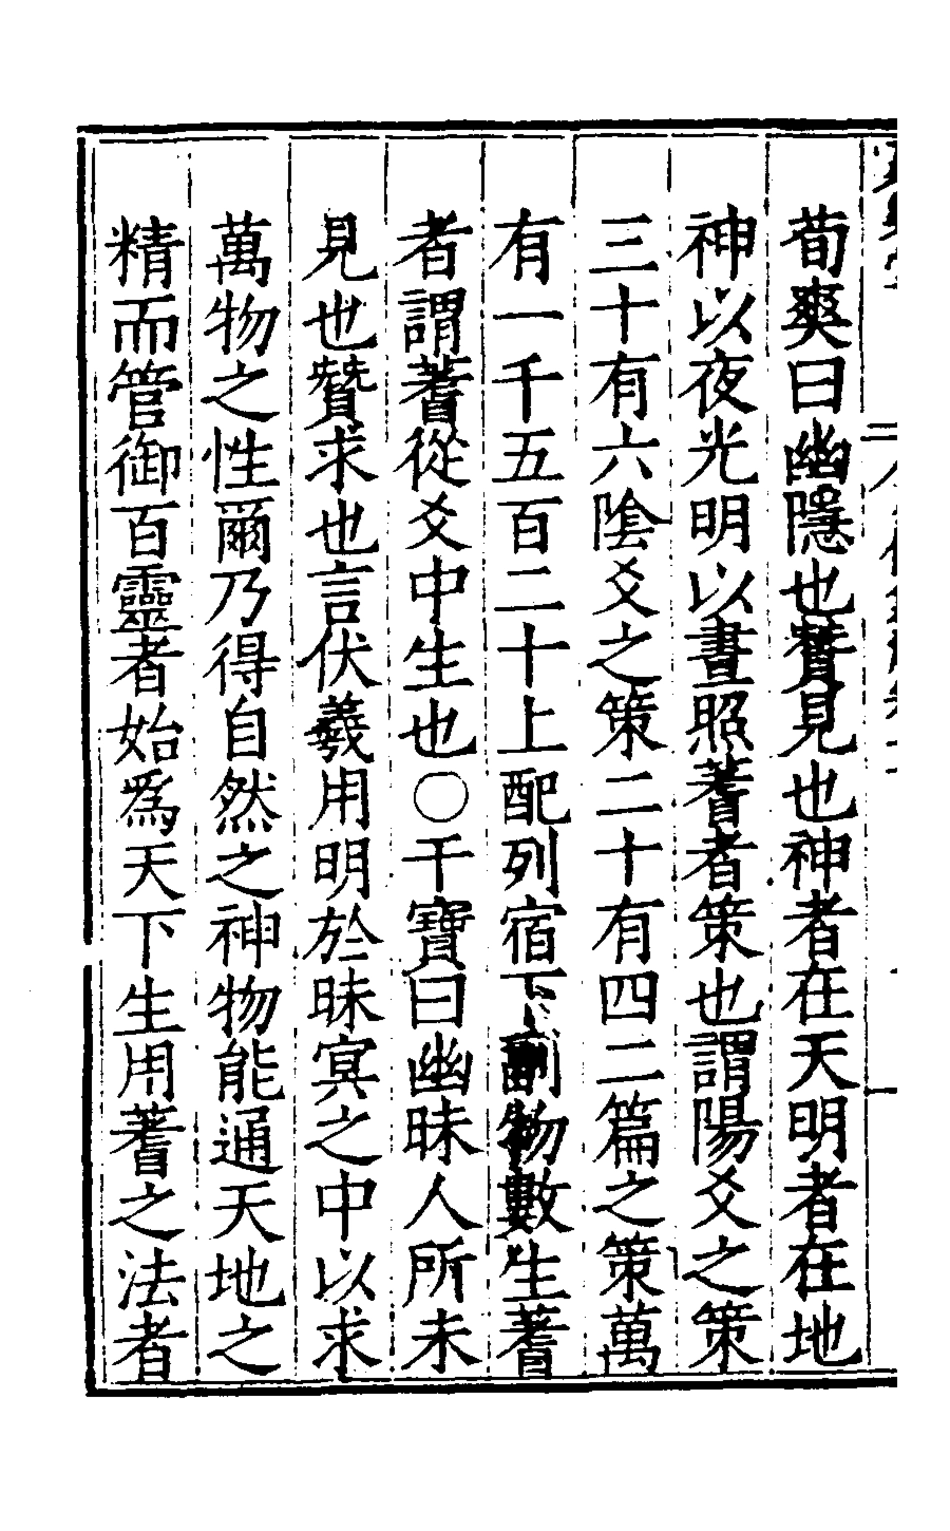 荀爽曰幽隱也贊見也神者在天明者在地
神以夜光明以晝照蓍者策也謂陽爻之策
三十有六陰爻之策二十有四二篇之策萬
有一千五百二十上配列宿下副物數生蓍
者謂蓍從爻中生也〇干寶曰幽昧人所未
見也贊求也言伏羲用明於昧冥之中以求
萬物之性爾乃得自然之神物能通天地之
精而管御百靈者始爲天下生用蓍之法者